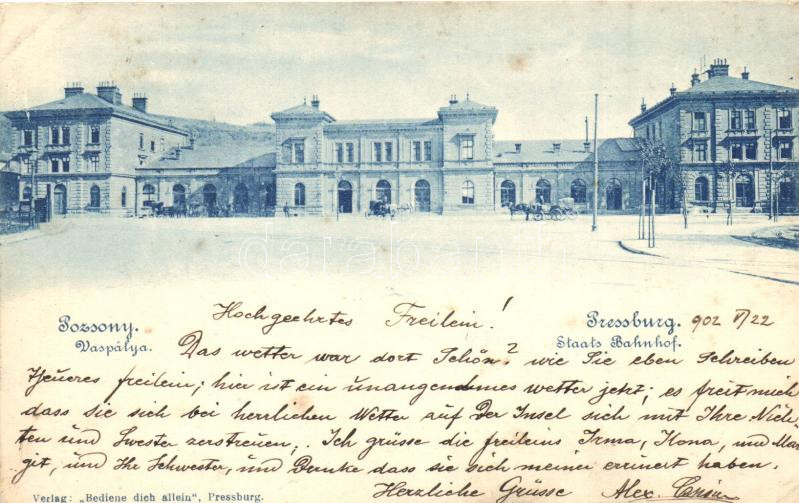 Hochgeehrtes Freilein!
Pozsony.
Vaspálya.
Pressburg.
Staats Bahnhof.
902 V/22
Das wetter war dort Schön? wie Sie eben Schreiben
freilein; hier ist ein unangenehmes wetter jetzt; es freit mich
dass sie sich bei herrlichen Wetter auf Der Insel sich mit Ihre Nich-
ten und Swester zerstreuen;. Ich grüsse die freileins Irma, Ilona, und Mar
git, und Ihr Schwester, und Danke dass sie sich meiner erinert haben.
Herzliche Grüsse Alex.
Verlag: „Bediene dich allein“, Pressburg.
darabanth